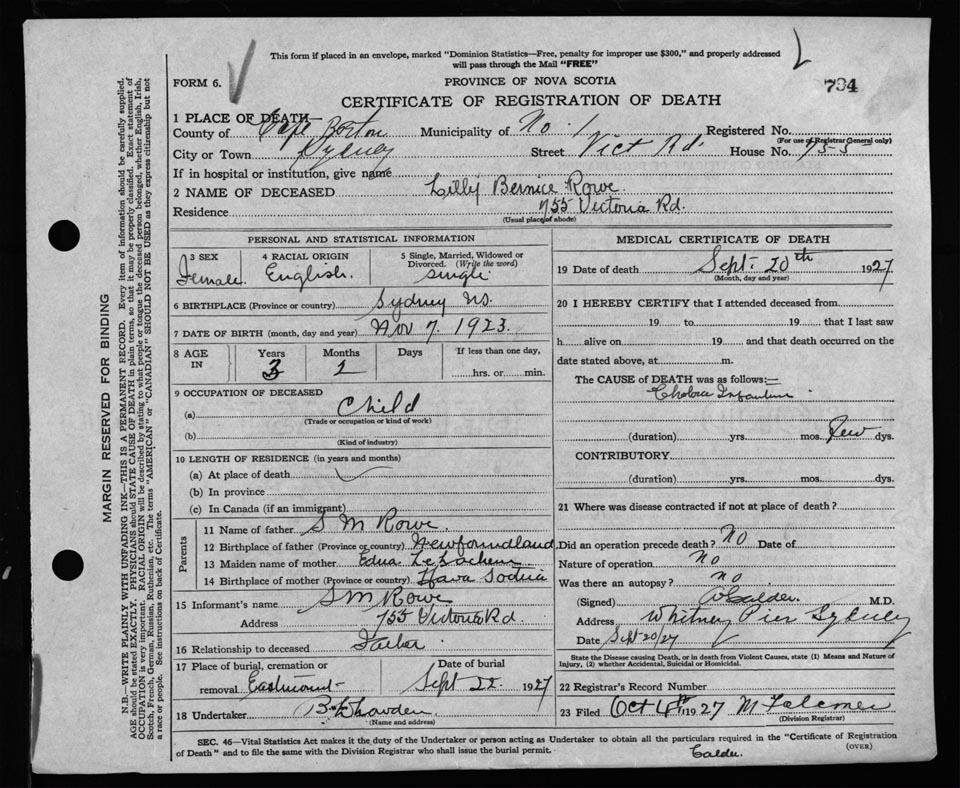 This form if placed in an envelope, marked "Dominion Statistics—Free, penalty for improper use $300," and properly addressed
will pass through the Mail "FREE"
FORM 6.
PROVINCE OF NOVA SCOTIA
794
CERTIFICATE OF REGISTRATION OF DEATH
1 PLACE OF DEATH
County of Cape Breton Municipality of No. 1 Registered No.
(For use of Registrar General only)
City or Town Sydney Street Vict Rd. House No. 755
If in hospital or institution, give name
2 NAME OF DECEASED Lilly Bernice Rowe
Residence 755 Victoria Rd.
(Usual place of abode)
PERSONAL AND STATISTICAL INFORMATION
3 SEX Female
4 RACIAL ORIGIN English.
5 Single, Married, Widowed or Divorced. (Write the word) single
6 BIRTHPLACE (Province or country) Sydney NS.
7 DATE OF BIRTH (month, day and year) Nov 7. 1923.
8 AGE IN Years 3 Months Days If less than one day, hrs. or min.
9 OCCUPATION OF DECEASED
(a) Child
(Trade or occupation or kind of work)
(b)
(Kind of industry)
10 LENGTH OF RESIDENCE (in years and months)
(a) At place of death
(b) In province
(c) In Canada (if an immigrant)
Parents
11 Name of father S M Rowe.
12 Birthplace of father (Province or country) Newfoundland
13 Maiden name of mother Edna
14 Birthplace of mother (Province or country) Nova Scotia
15 Informant's name S M Rowe
Address 755 Victoria Rd
16 Relationship to deceased Father
17 Place of burial, cremation or removal Eastmount
Date of burial Sept 22 1927
18 Undertaker
(Name and address)
MEDICAL CERTIFICATE OF DEATH
19 Date of death Sept. 20th 1927
(Month, day and year)
20 I HEREBY CERTIFY that I attended deceased from
19 to 19 that I last saw
h alive on 19 and that death occurred on the
date stated above, at m.
The CAUSE of DEATH was as follows:—
Cholera Infantum
(duration) yrs. mos. Few dys.
CONTRIBUTORY
(duration) yrs. mos. dys.
21 Where was disease contracted if not at place of death?
Did an operation precede death? No Date of
Nature of operation No
Was there an autopsy? no
(Signed) Calder M.D.
Address Whitney Pier Sydney
Date Sept 20/27
State the Disease causing Death, or in death from Violent Causes, state (1) Means and Nature of
Injury, (2) whether Accidental, Suicidal or Homicidal.
22 Registrar's Record Number
23 Filed Oct 4th 1927 M
(Division Registrar)
SEC. 46—Vital Statistics Act makes it the duty of the Undertaker or person acting as Undertaker to obtain all the particulars required in the "Certificate of Registration
of Death" and to file the same with the Division Registrar who shall issue the burial permit.
(OVER)
Calder.
MARGIN RESERVED FOR BINDING
N.B.—WRITE PLAINLY WITH UNFADING INK—THIS IS A PERMANENT RECORD. Every item of information should be carefully supplied.
AGE should be stated EXACTLY. PHYSICIANS should STATE CAUSE OF DEATH in plain terms, so that it may be properly classified. Exact statement of
OCCUPATION is very important. RACIAL ORIGIN will be described by stating to what people or tongue the deceased person belonged, whether English, Irish,
Scotch, French, German, Russian, Ruthenian, etc. The terms "AMERICAN" or "CANADIAN" SHOULD NOT BE USED as they express citizenship but not
a race or people. See instructions on back of Certificate.